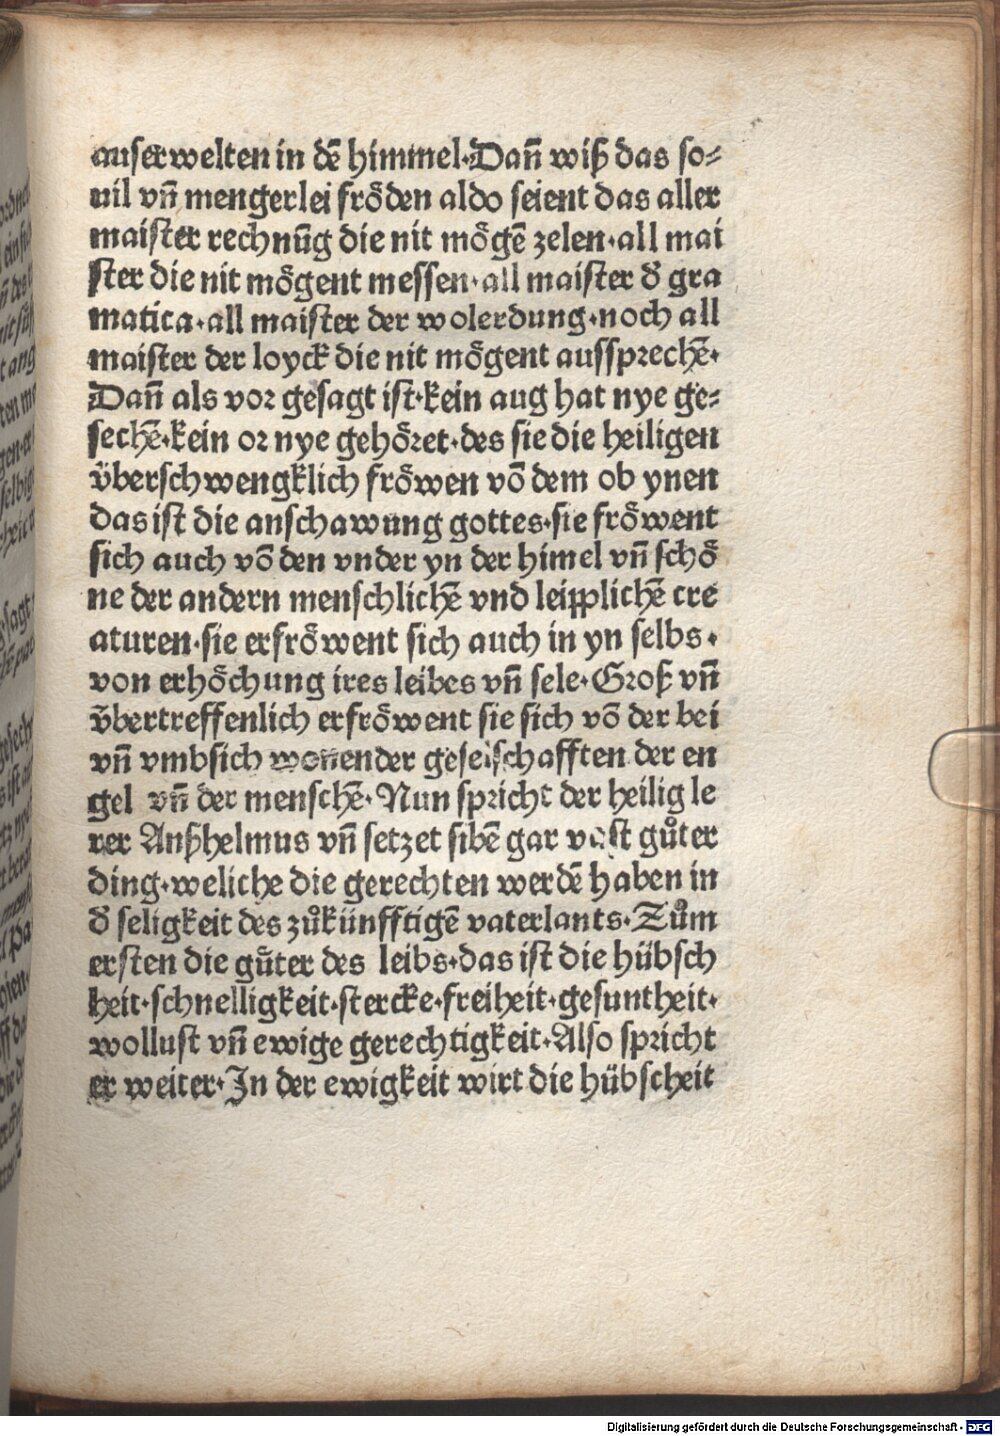 auserwelten in dē himmel·Dañ wiß das so⸗
uil vñ mengerlei frőden aldo seient das aller
maister rechnūg die nit mőgē zelen·all mai
ster die nit mőgent messen·all maister đ gra
matica·all maister der wolerdung·noch all
maister der loyck die nit mőgent aussprechē·
Dañ als vor gesagt ist·kein aug hat nye ge⸗
sechē·kein or nye gehőret·des sie die heiligen
v̈berschwengklich frőwen vō dem ob ynen
das ist die anschawung gottes·sie frőwent
sich auch vō den vnder yn der himel vñ schő
ne der andern menschlichē vnd leipplichē cre
aturen·sie erfrőwent sich auch in yn selbs·
von erhőchung ires leibes vñ sele·Groß vñ
v̈bertreffenlich erfrőwent sie sich vō der bei
vñ vmbsich wonender geselschafften der en
gel vñ der menschē·Nun spricht der heilig le
rer Anßhelmus vñ setzet sibē gar vast gůter
ding·weliche die gerechten werdē haben in
đ seligkeit des zůkünfftigē vaterlants·Zům
ersten die gůter des leibs·das ist die hübsch
heit·schnelligkeit·stercke·freiheit·gesuntheit·
wollust vñ ewige gerechtigkeit·Also spricht
er weiter·In der ewigkeit wirt die hübscheit
Digitalisierung gefördert durch die Deutsche Forschungsgemeinschaft - DFG